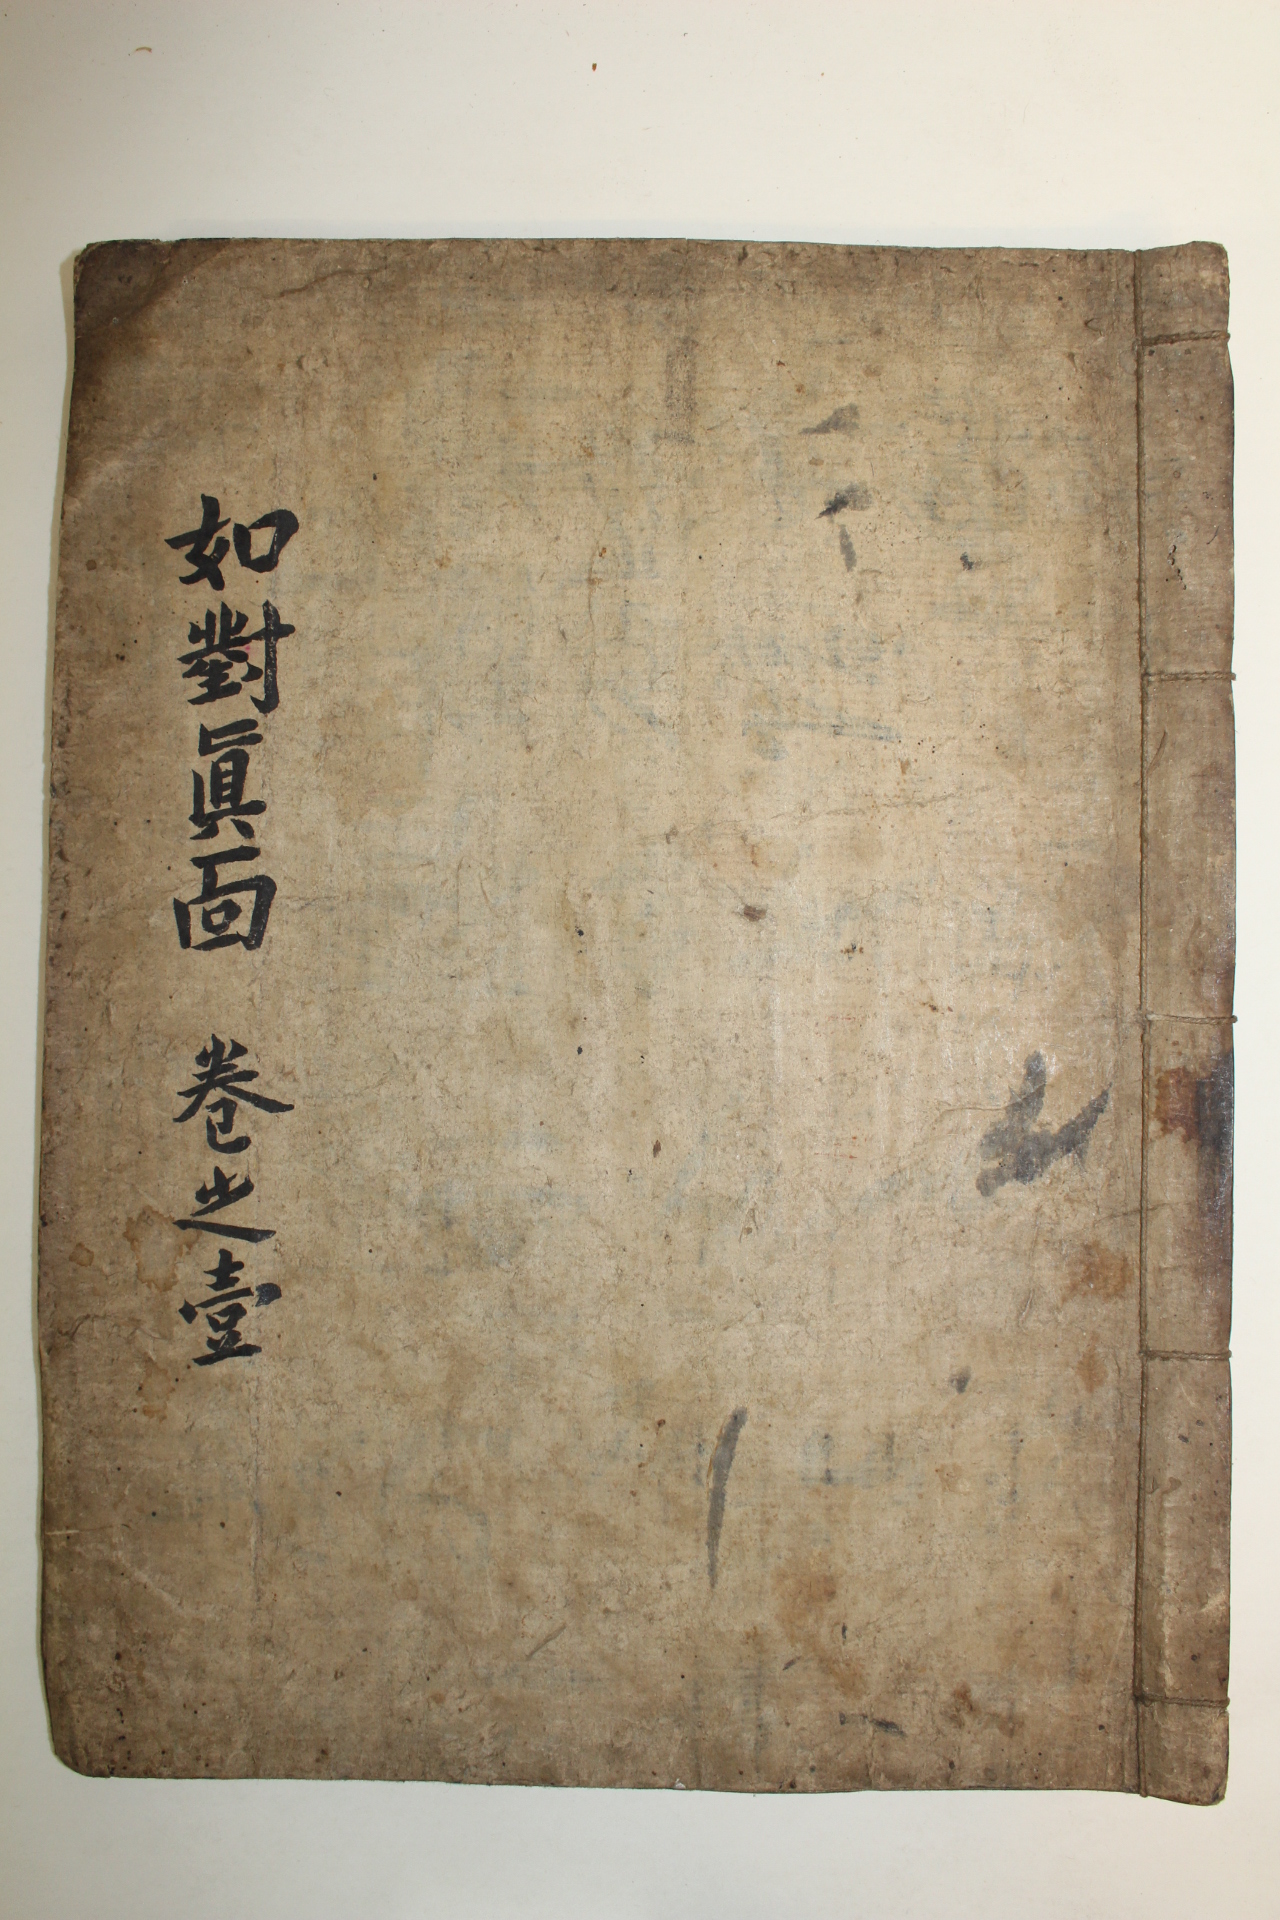 如對眞面 卷之壹